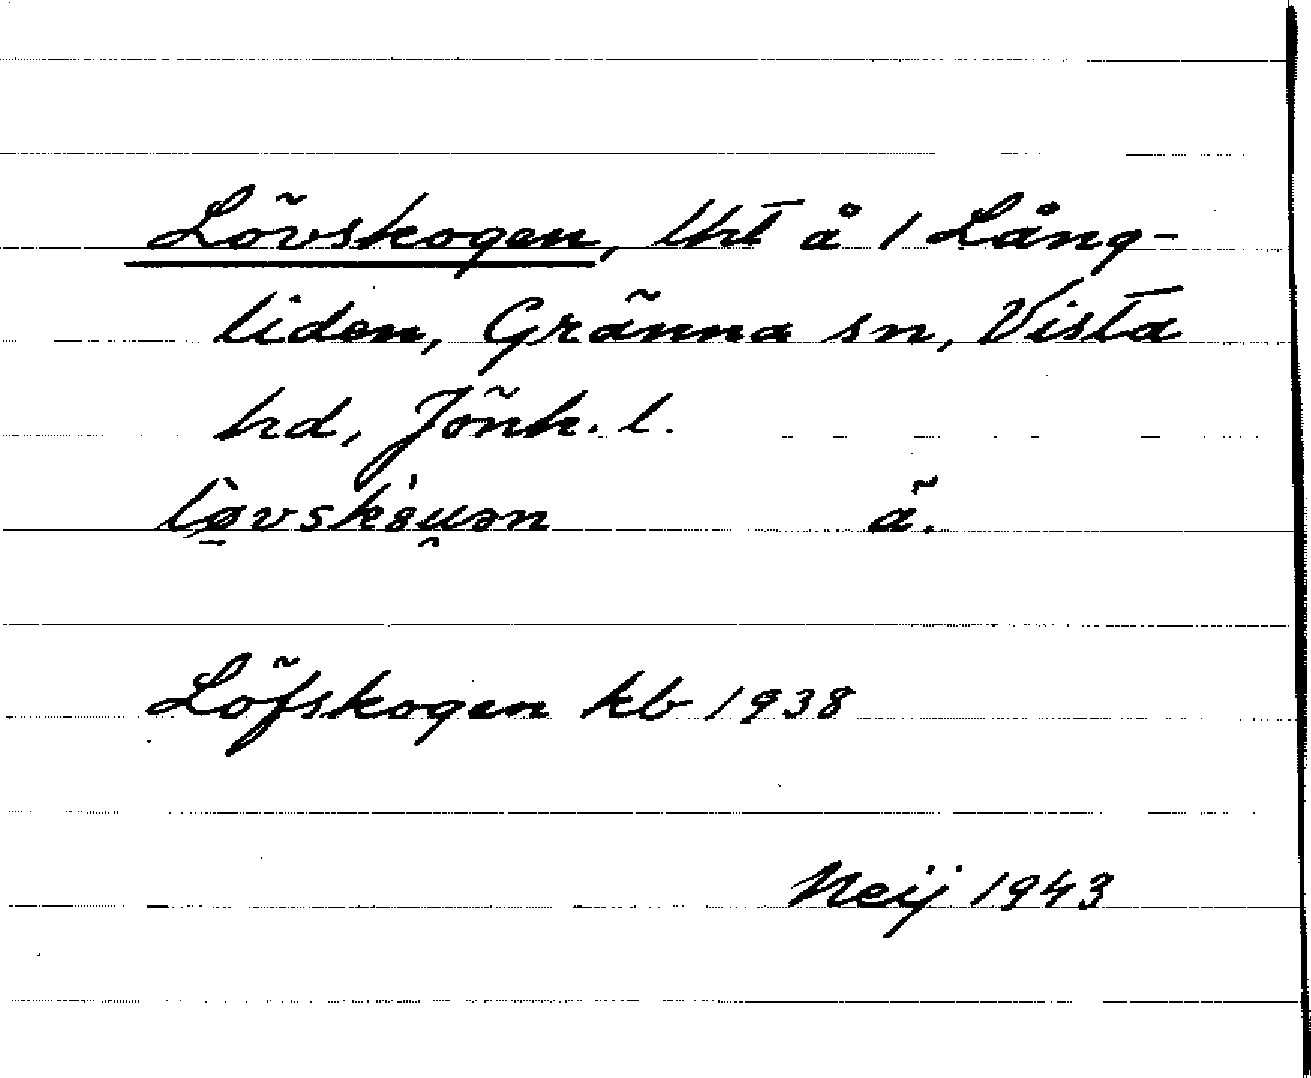 Lövskogen, lht å 1 Lång-
liden, Gränna sn, Vista
hd, Jönk. l.
ä.
Löfskogen kb 1938
Neij 1943